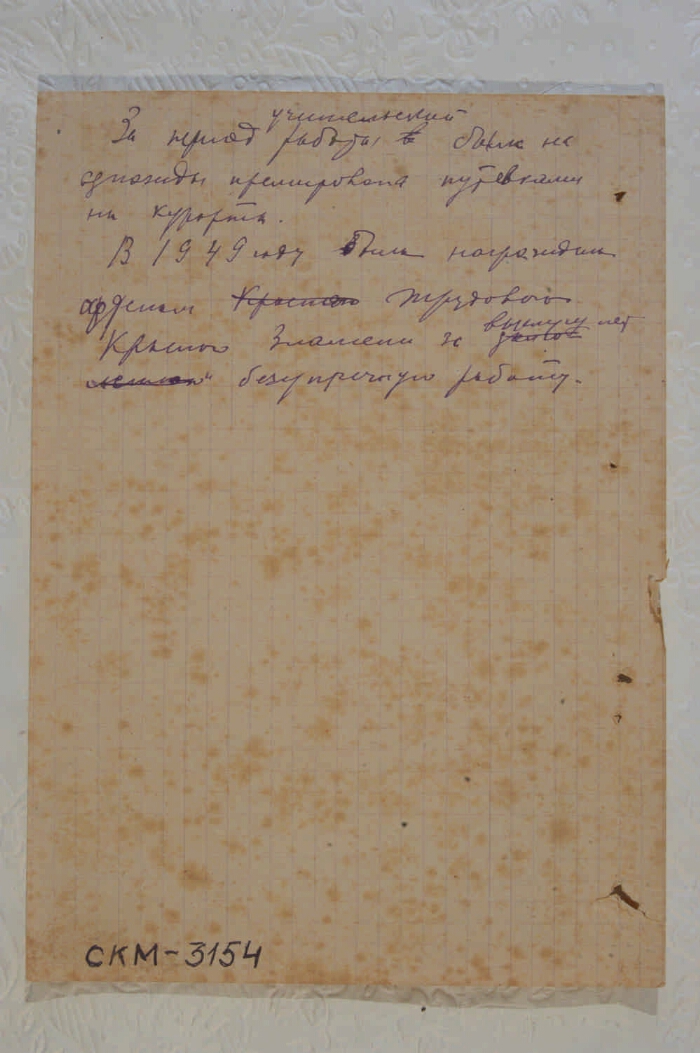 учительский
За период работы в была не
однажды премирована путевками
на курорты.
В 1949 году была награждена
орденом Красно Трудового
Красного Знамени за выслугу лет
безупречную работу.
СКМ-3154